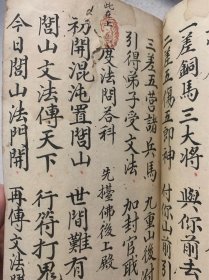 一差銅馬三大將 與你前去
二差五傷五郎神 付你山前引
三差五营諸兵馬 九重山後付
引得弟子受文法 加封官職
此在上
度法問各科 先擅佛後上殿
初開混沌置閭山 世間難有
閭山文法傳天下 行符打
今日閭山法門開 再傳文法